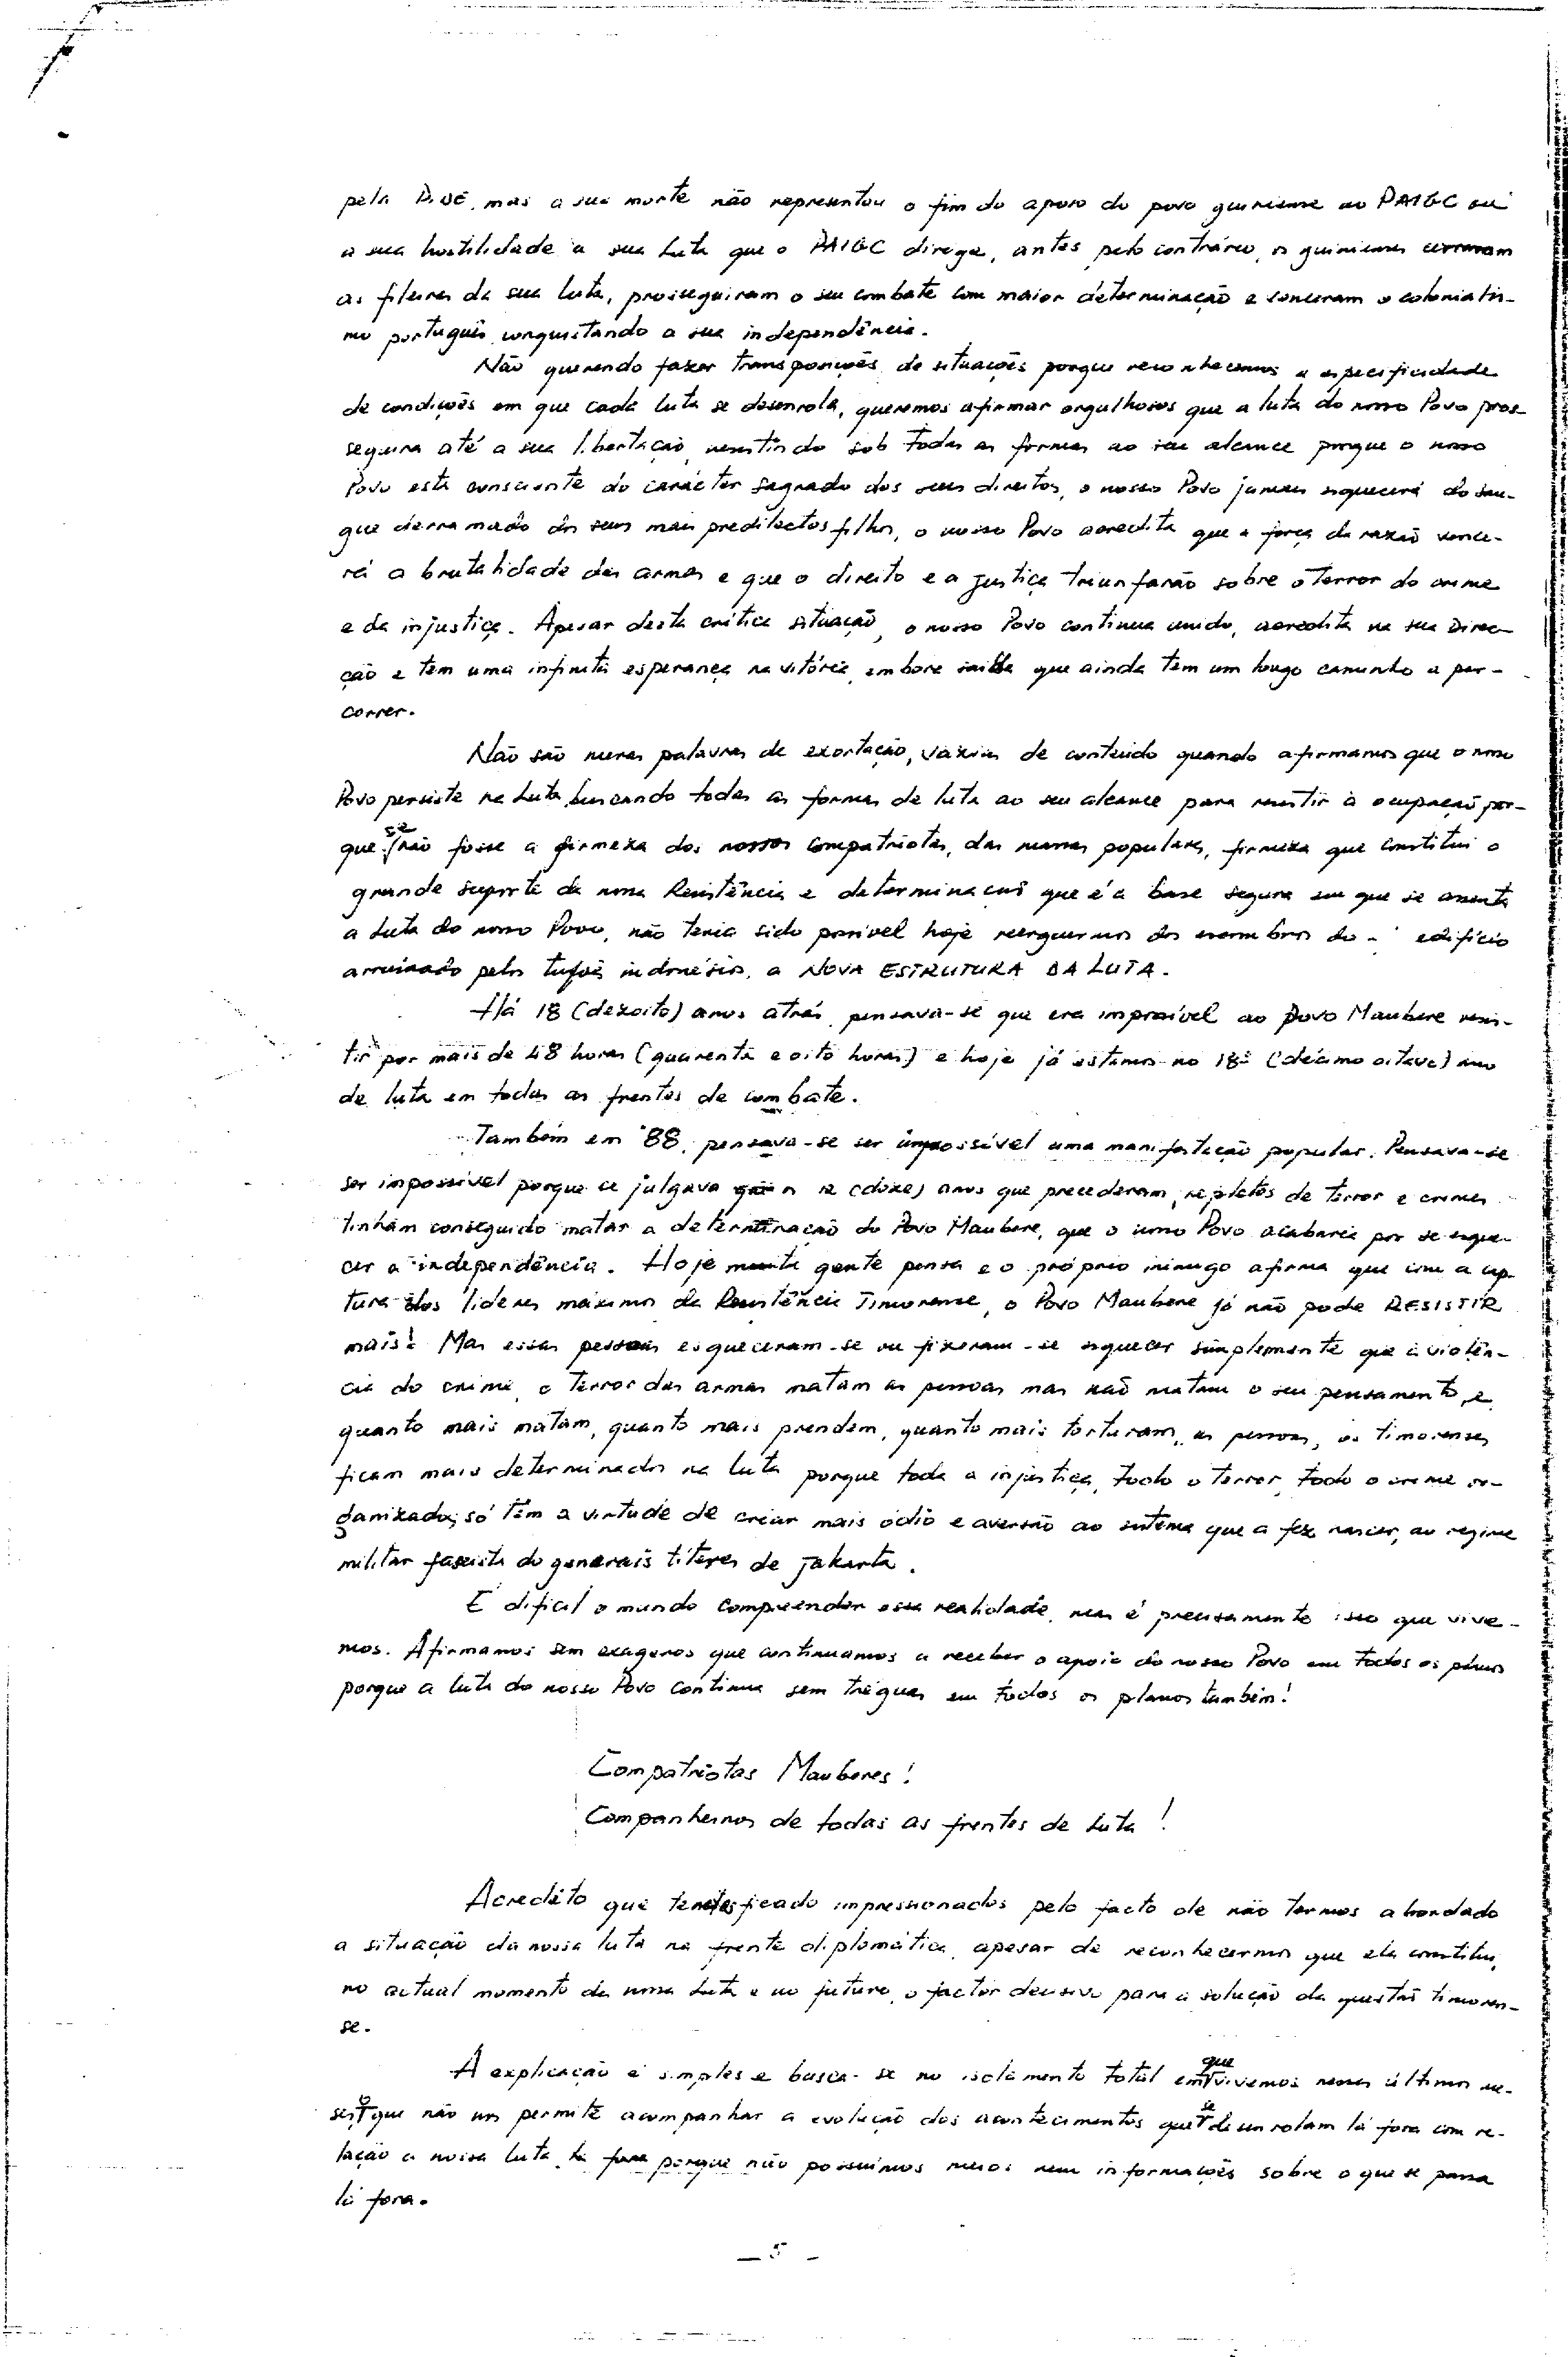 pela PIDE, mas a sua morte não representou o fim do apoio do povo guineense ao PAIGC ou
a sua hostilidade a sua Luta que o PAIGC dirige, antes pelo contrário, os guineenses cerraram
as fileiras da sua luta, prosseguiram o seu combate com maior determinação e venceram o colonialis-
mo português conquistando a sua independência.
Não querendo fazer transposições de situações porque reconhecemos a especificidade
de condições em que cada luta se desenrola, queremos afirmar orgulhosos que a luta do nosso Povo pros-
seguirá até a sua libertação, resistindo sob todas as formas ao seu alcance porque o nosso
Povo está consciente do carácter sagrado dos seus direitos, o nosso Povo jamais esquecerá do san-
gue derramado dos seus mais predilectos filhos, o nosso Povo acredita que a força da razão vence-
rá a brutalidade das armas e que o direito e a justiça triunfarão sobre o terror do crime
e da injustiça. Apesar desta crítica situação, o nosso Povo continua unido, acredita na sua Direc-
ção e tem uma infinita esperança na vitória, embora saiba que ainda tem um longo caminho a per-
correr.
Não são meras palavras de exortação, vazias de conteúdo quando afirmamos que o nosso
Povo persiste na Luta, buscando todas as formas de luta ao seu alcance para resistir à ocupação por-
que se não fosse a firmeza dos nossos compatriotas, das massas populares, firmeza que constitui o
grande suporte da nossa Resistência e determinação que é a base segura em que se assenta
a Luta do nosso Povo, não teria sido possível hoje reerguermos dos escombros do edifício
arruinado pelos tufões indonésios, a NOVA ESTRUTURA DA LUTA.
Há 18 (dezoito) anos atrás, pensava-se que era impossível ao Povo Maubere resis-
tir por mais de 48 horas (quarenta e oito horas) e hoje já estamos no 18º (décimo oitavo) ano
de luta em todas as frentes de combate.
Também em 88, pensava-se ser impossível uma manifestação popular. Pensava-se
ser impossível porque se julgava que os 12 (doze) anos que precederam, repletos de terror e crimes
tinham conseguido matar a determinação do Povo Maubere, que o nosso Povo acabaria por se esque-
cer a independência. Hoje muita gente pensa e o próprio inimigo afirma que com a cap-
tura dos líderes máximos da Resistência Timorense, o Povo Maubere já não pode RESISTIR
mais! Mas essas pessoas esqueceram-se ou fizeram-se esquecer simplesmente que a violên-
cia do crime, o terror das armas matam as pessoas mas não matam o seu pensamento, e
quanto mais matam, quanto mais prendem, quanto mais torturam, as pessoas, os timorenses
ficam mais determinados na luta porque toda a injustiça, todo o terror, todo o crime or-
ganizado, só têm a virtude de criar mais ódio e aversão ao sistema que a fez nascer, ao regime
militar fascista do generais títeres de Jakarta.
É difícil o mundo compreender essa realidade, mas é precisamente isso que vive-
mos. Afirmamos sem exageros que continuamos a receber o apoio do nosso Povo em todos os planos
porque a luta do nosso Povo continua sem tréguas em todos os planos também!
Compatriotas Mauberes!
Companheiros de todas as frentes de Luta!
Acredito que ficado impressionados pelo facto de não termos abordado
a situação da nossa luta na frente diplomática, apesar de reconhecermos que ela constitui,
no actual momento da nossa Luta e no futuro, o factor decisivo para a solução da questão timoren-
se.
A explicação é simples e busca-se no isolamento total em que vivemos nesses últimos me-
ses o que não nos permite acompanhar a evolução dos acontecimentos que se desenrolam lá fora com re-
lação a nossa luta porque não possuímos meios nem informações sobre o que se passa
lá fora.
— 5 —